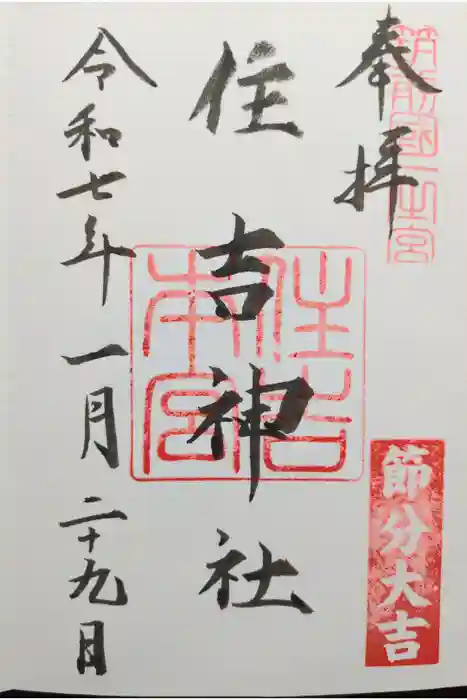 奉拝
筑前國一之宮
節分大吉
住吉神社
住吉本宮
令和七年一月二十九日